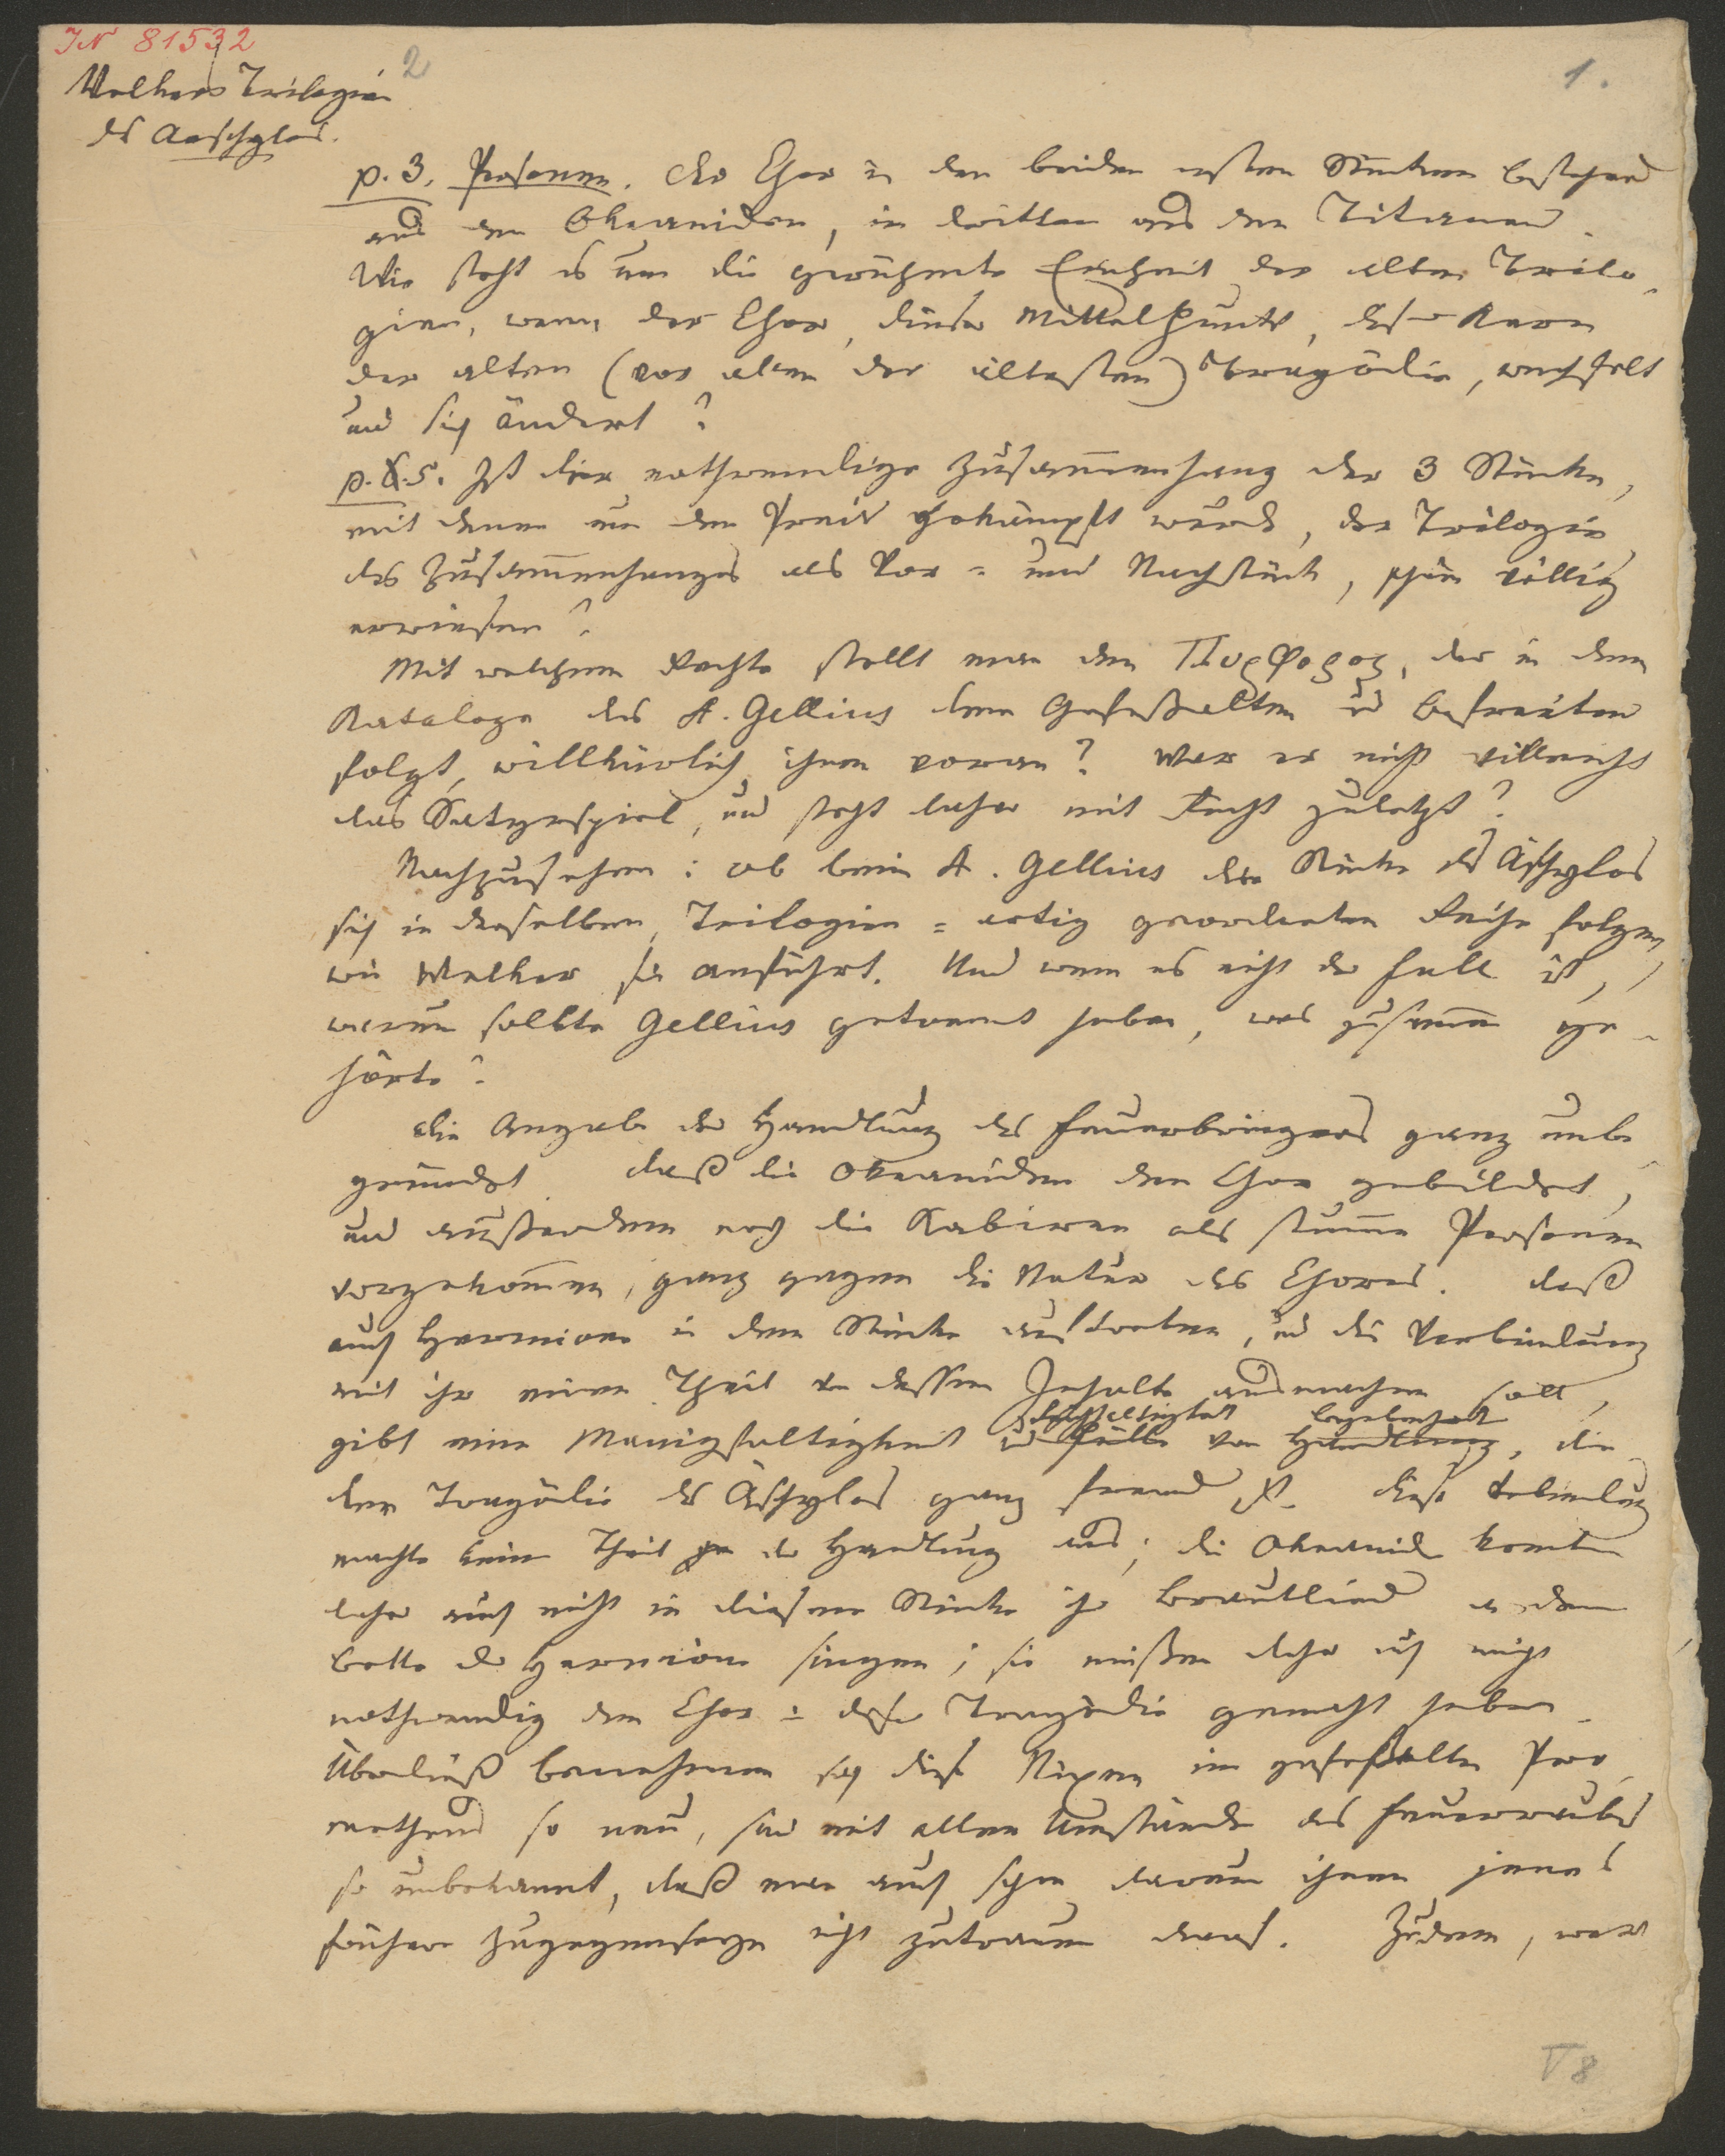 IN 81532
2
1.
Welkers Trilogie
des Aeschylos.
p. 3. Personen. Der Chor in den beiden ersten Stücken bestehend
aus den Okeaniden, im dritten aus den Titanen.
Wie steht es um die gerühmte Einheit der alten Trilo-
gien, wenn der Chor, dieser Mittelpunkt, dieser Kern
der alten (vor allem der ältesten) Tragödie, wechselt
und sich ändert?
p. 5. Ist der nothwendige Zusammenhang der 3 Stücke,
mit denen um den Preis gekämpft wurde, der Trilogie
des Zusammenhanges als Vor- und Nachstück, schon völlig
erwiesen?
Mit welchem Rechte stellt man den Πυρφορος, der in dem
Kataloge des A. Gellius dem Gefesselten und Befreiten
folgt, willkürlich ihnen voran? War er nicht vielleicht
das Satyrspiel, und steht daher mit Recht zuletzt?
Nachzusehen: ob beim A. Gellius die Stücke des Äschylos
sich in derselben, Trilogien-artig geordneten Reihe folgen,
wie Welker sie anführt. Und wenn es nicht der Fall ist,
warum sollte Gellius getrennt haben, was zusammen ge-
hörte?
Die Angabe der Handlung des Feuerbringers ganz unbe-
gründet. Daß die Okeaniden den Chor gebildet,
und außerdem noch die Kabiren als stumme Personen
vorgekommen, ganz gegen die Natur des Chores. Daß
auch Hermione in dem Stücke auftreten, und die Verbindung
mit ihr einen Theil von dessen Inhalte ausmachen soll,
gibt eine Manigfaltigkeit und Fülle von Handlung, die
Begebenheit
der Tragödie des Äschylos ganz fremd ist. Diese Verbindung
machte keinen Theil der Handlung aus; die Okeaniden konnten
daher auch nicht in diesem Stücke ihr Brautlied an dem
Bette der Hermione singen; sie müßen daher auch nicht
nothwendig den Chor in dieser Tragödie gemacht haben.
Überdieß benehmen sich diese Nixen im gefesselten Pro-
metheus so neu, sind mit allen Umständen des Feuerraubes
so unbekannt, daß man auch schon darum ihnen jenes
frühere Zugegenseyn nicht zutrauen darf. Zudem, war
V 8